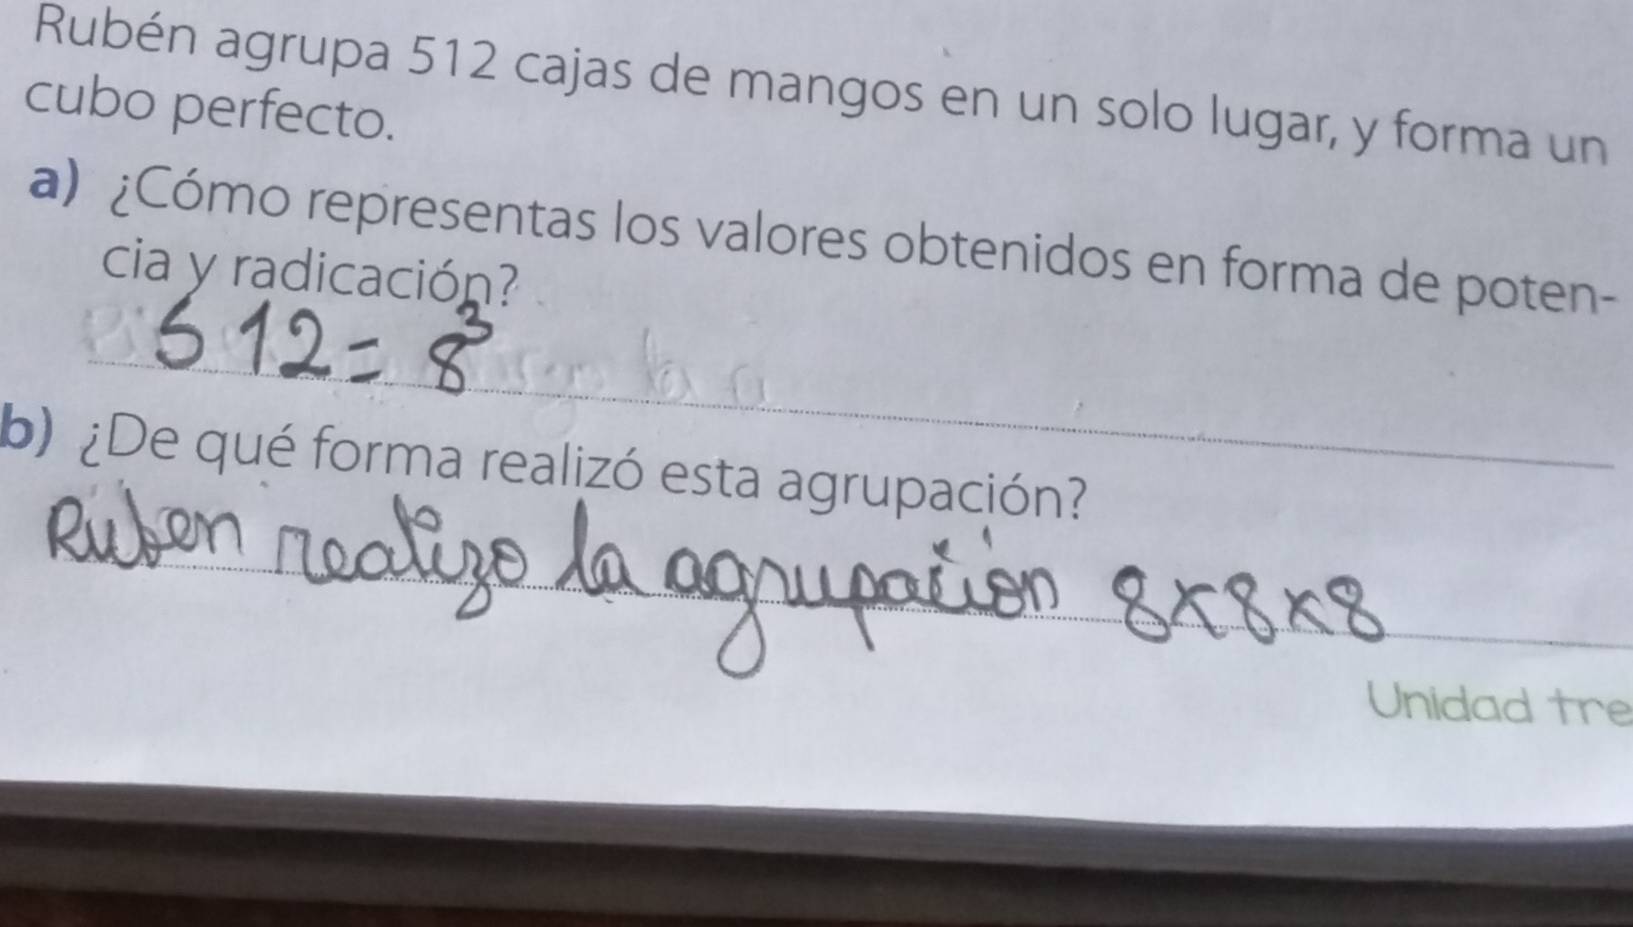 Rubén agrupa 512 cajas de mangos en un solo lugar, y forma un
cubo perfecto.
a) ¿Cómo representas los valores obtenidos en forma de poten-
cia y radicación?
512 = 8³
b) ¿De qué forma realizó esta agrupación?
Ruben realizo la agrupación 8x8x8
Unidad tre